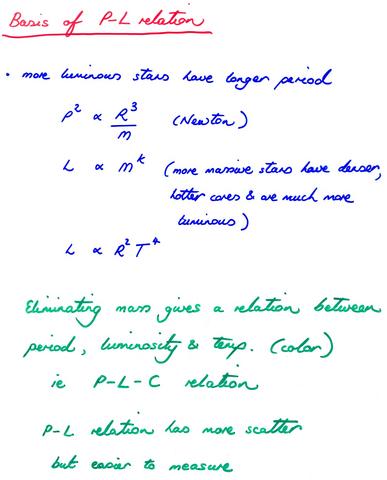 Basis of P-L relation
• more luminous stars have longer period
P² ∝ R³/m (Newton)
L ∝ m^k (more massive stars have denser,
hotter cores & are much more
luminous)
L ∝ R² T⁴
Eliminating mass gives a relation between
period, luminosity & temp. (color)
ie P-L-C relation
P-L relation has more scatter
but easier to measure